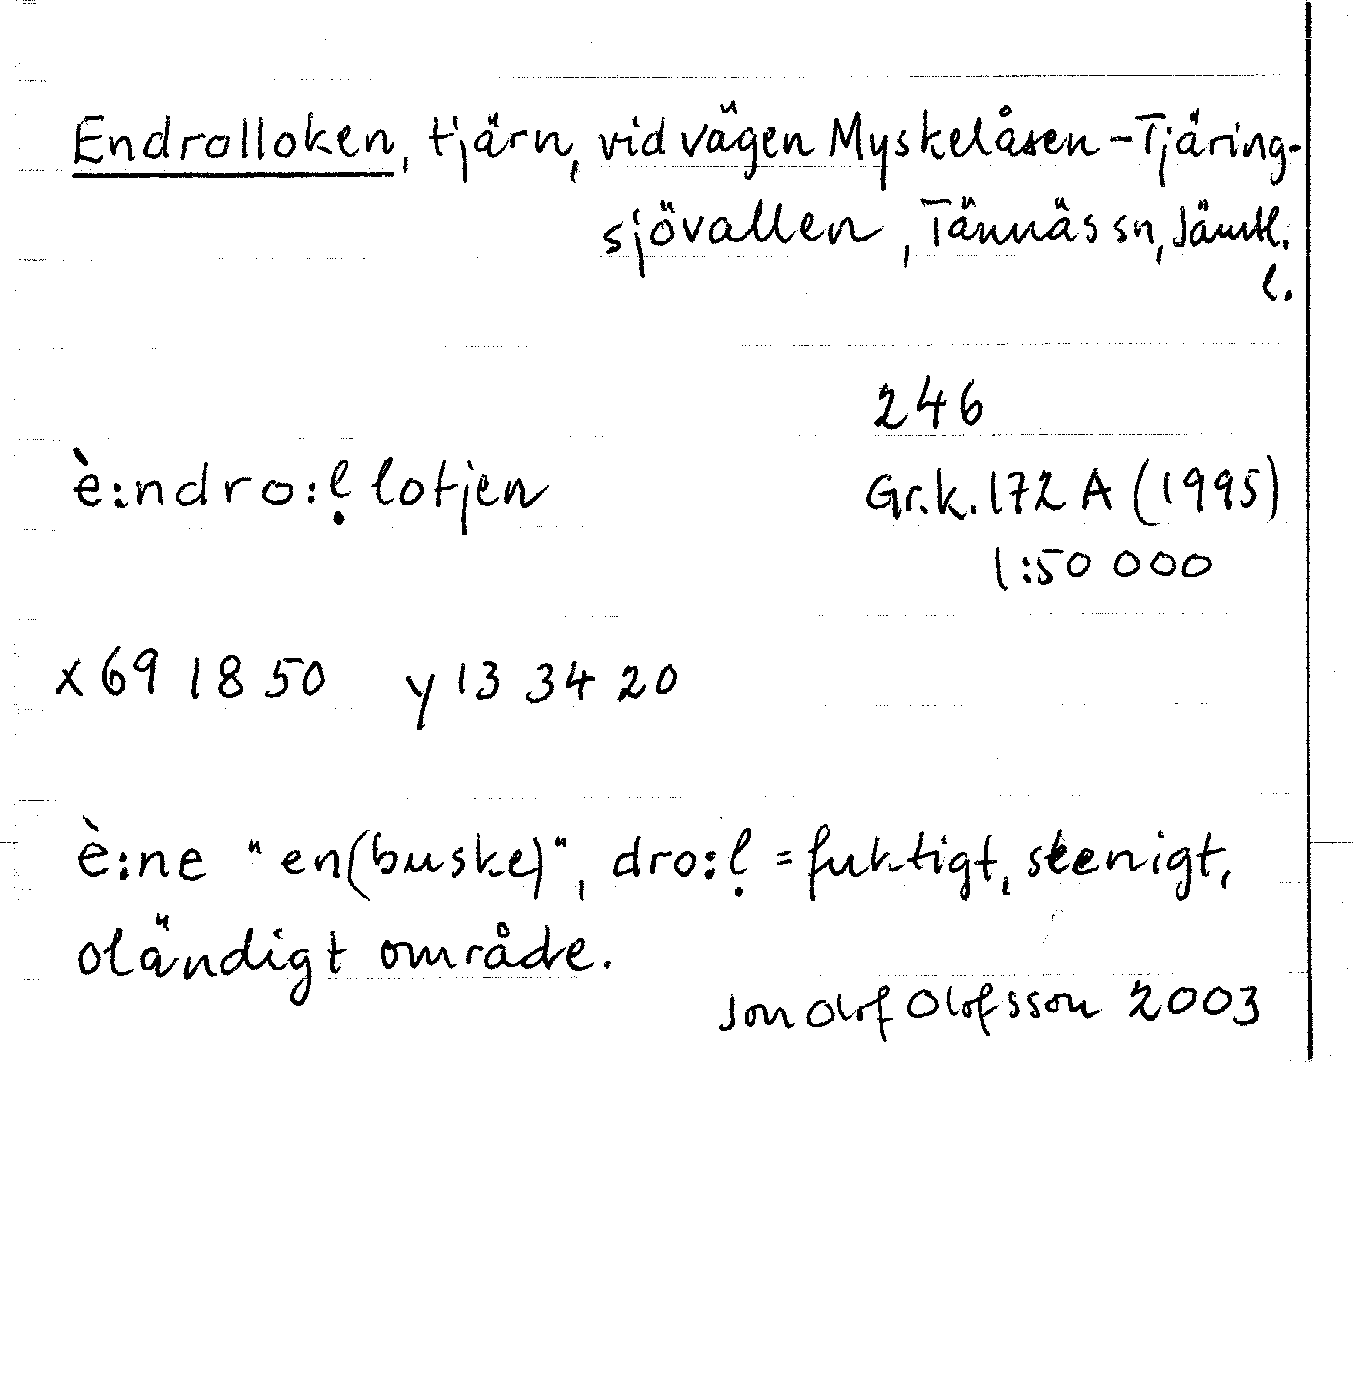 Endrolloken, tjärn, vid vägen Myskelåsen - Tjäring-
sjövallen, Tännäs sn, Jämtl.
l.
246
è:ndro:ḷ lotjen
Gr.k. 172 A (1995)
1:50 000
x 69 18 50 y 13 34 20
è:ne "en(buske)", dro:ḷ = fuktigt, stenigt,
oländigt område.
Jon Olof Olofsson 2003